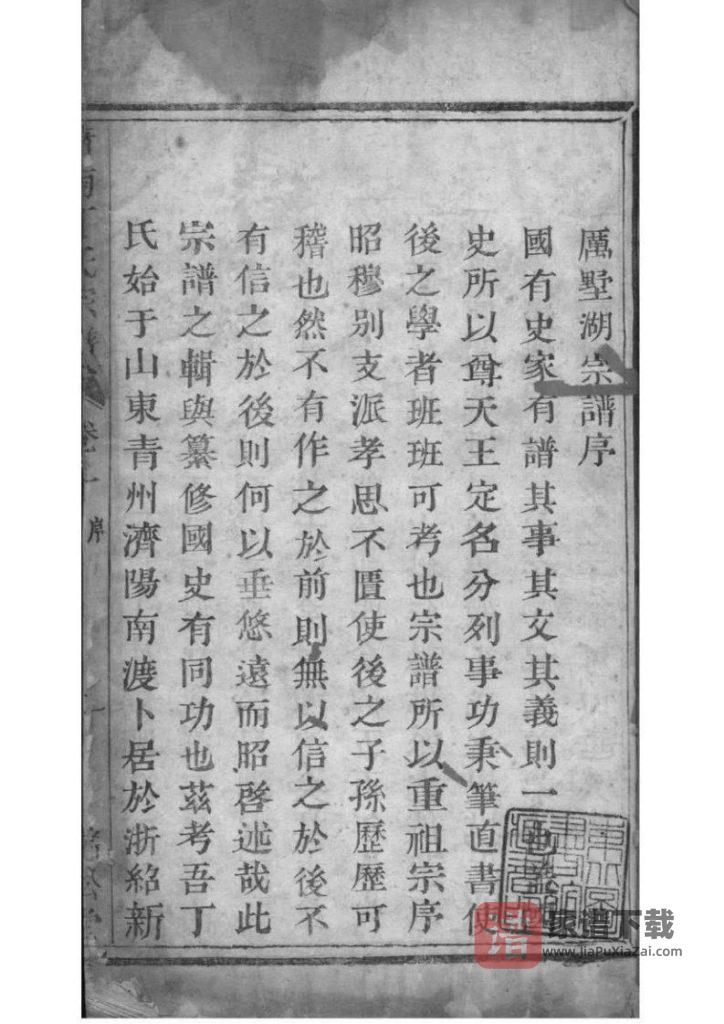 厲墅湖宗譜序
國有史家有譜其事其文其義則一也
史所以尊天王定名分列事功秉筆直書使
後之學者班班可考也宗譜所以重祖宗序
昭穆別支派孝思不匱使後之子孫歷歷可
稽也然不有作之於前則無以信之於後不
有信之於後則何以垂悠遠而昭啓述哉此
宗譜之輯與纂修國史有同功也茲考吾丁
氏始于山東青州濟陽南渡卜居於浙紹新
氏宗譜
卷
序
譜
家谱下载
www.jiaPuXiaZai.com